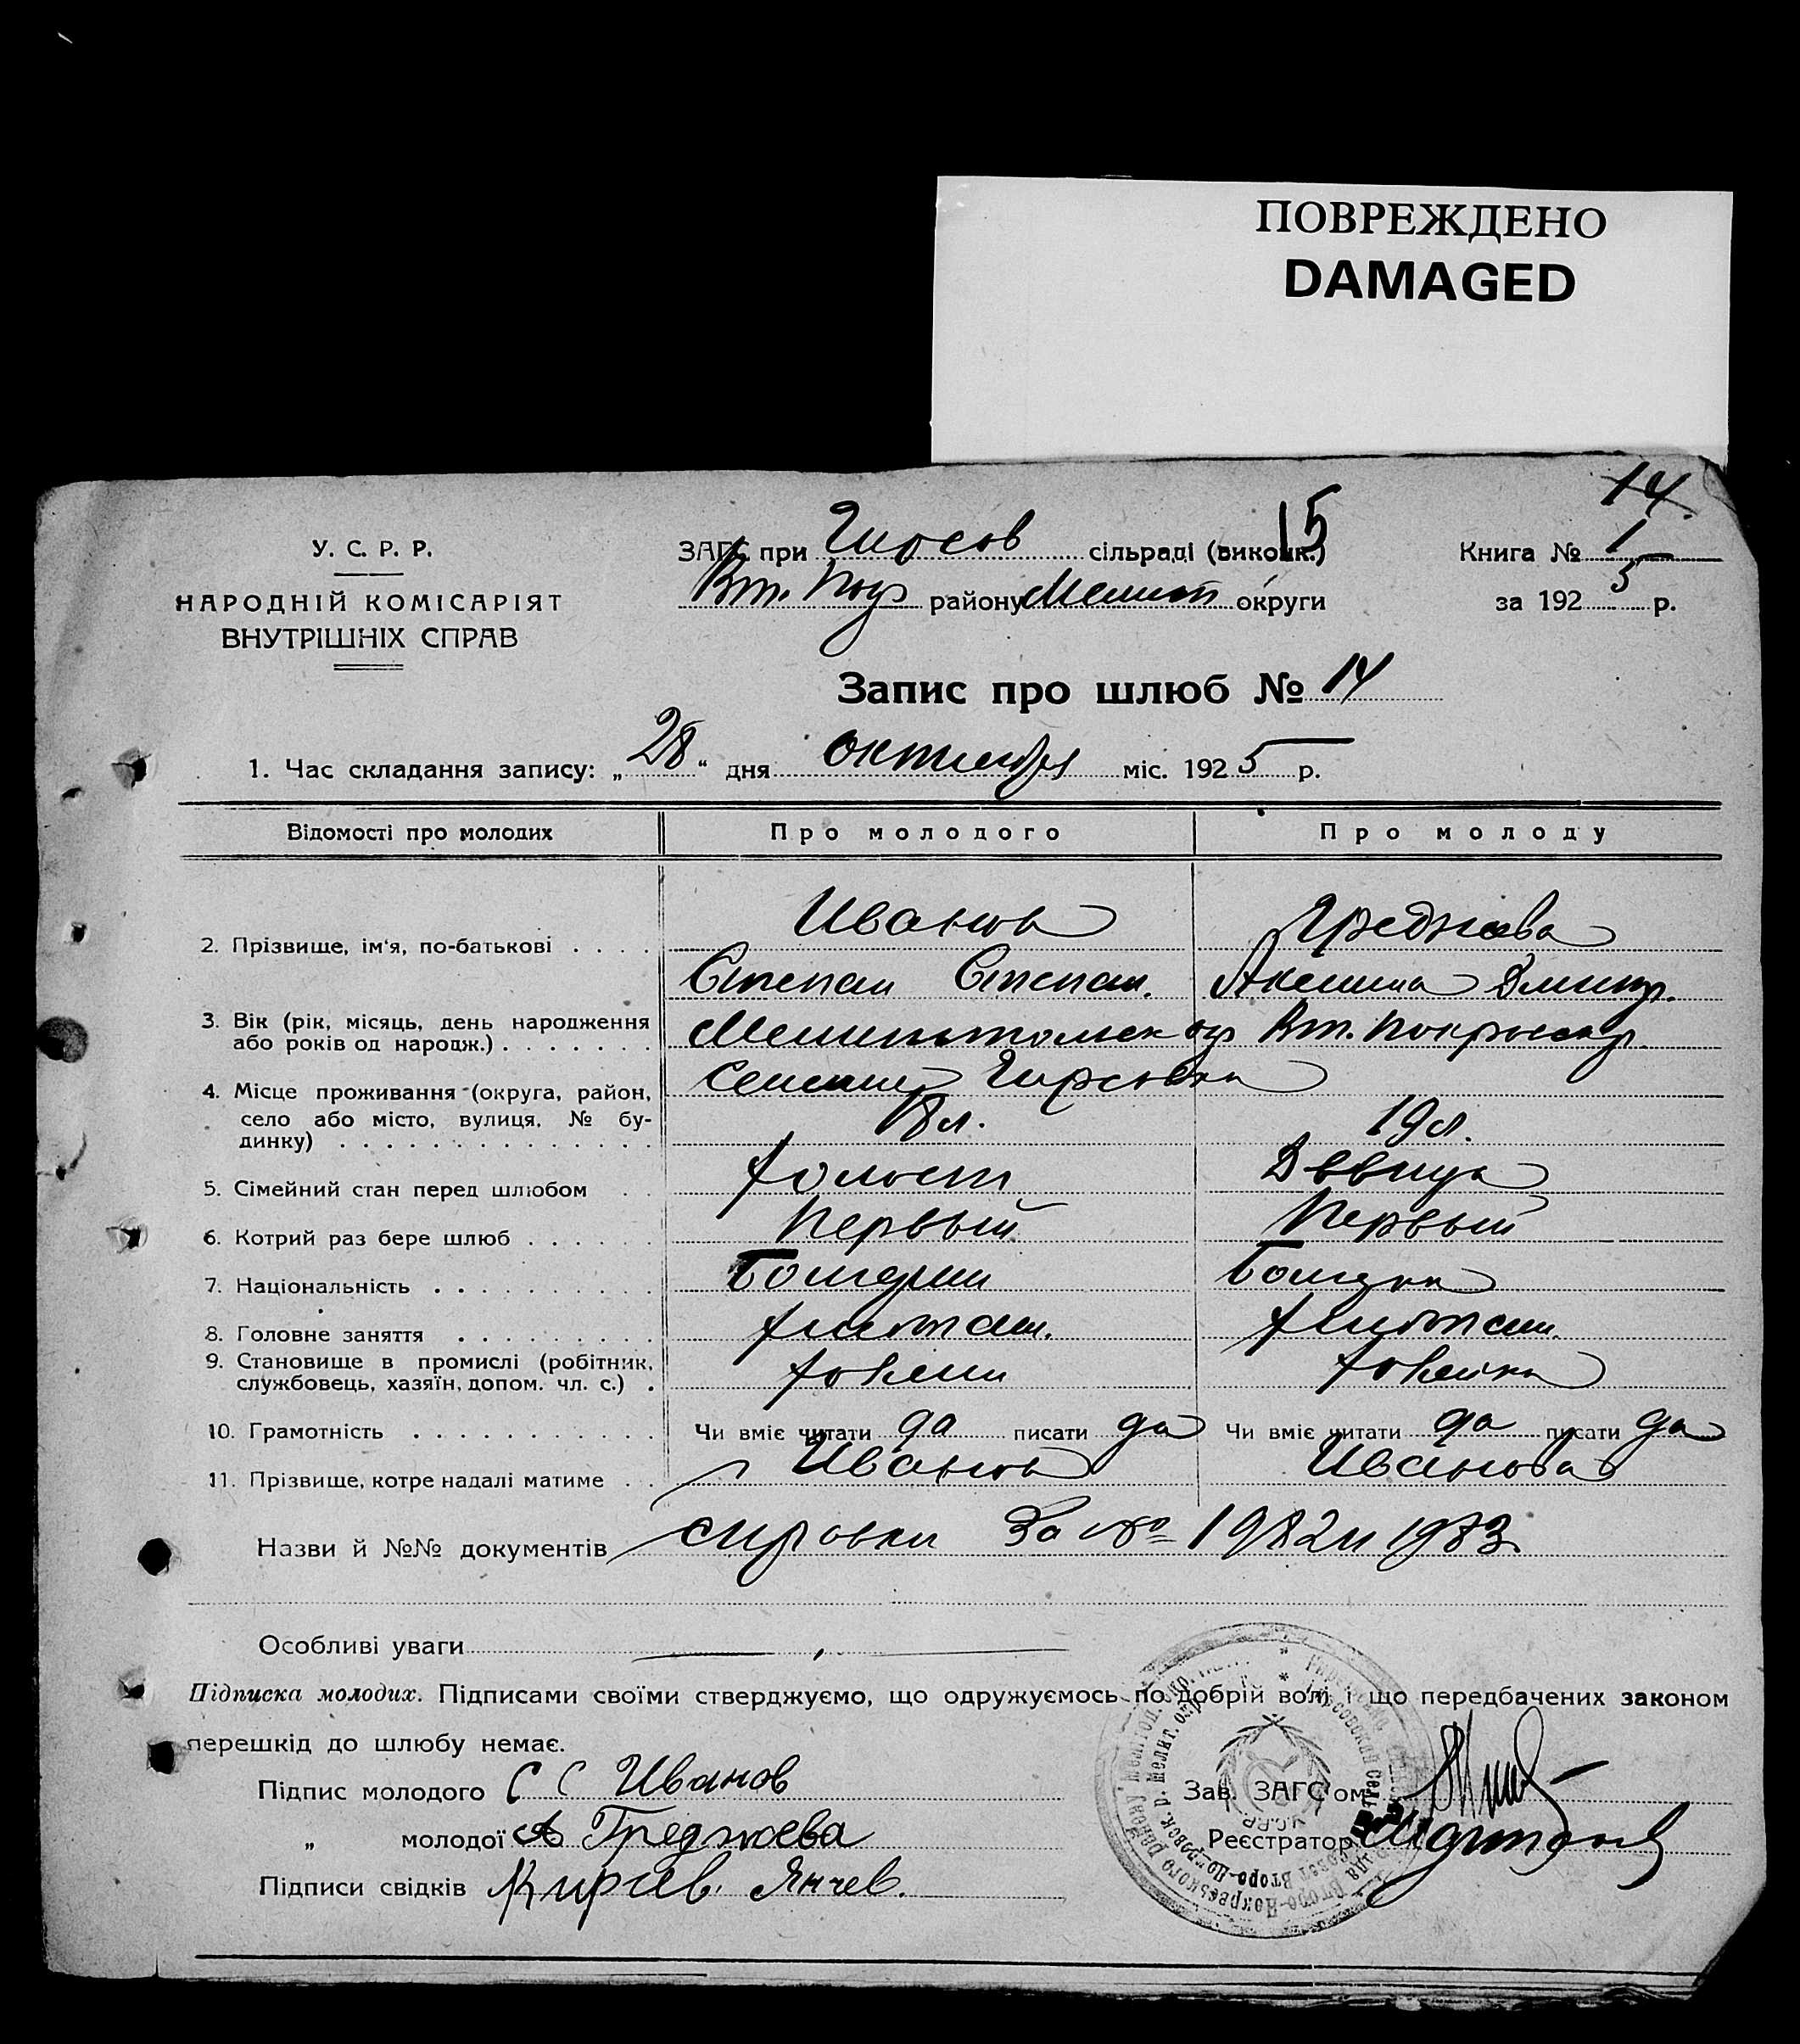 ПОВРЕЖДЕНО
DAMAGED
14.
У. С. Р. Р.
НАРОДНІЙ КОМІСАРІЯТ
ВНУТРІШНІХ СПРАВ
15
ЗАГС при сільраді (виконк.)
Вт. Покр району Мелит округи
Книга № 1
за 1925 р.
Запис про шлюб № 14
1. Час складання запису: „28“ дня октября міс. 1925 р.
Відомості про молодих Про молодого Про молоду
2. Прізвище, ім'я, по-батькові . . . . Иванов
Степан Степан. Аксинья Дмитр.
3. Вік (рік, місяць, день народження
або років од народж.) . . . . . . . Мелитопольск окр Вт. Покровск р.
4. Місце проживання (округа, район,
село або місто, вулиця, № бу-
динку) . . . . . . . . . . . . . . 18 л. 19 л.
5. Сімейний стан перед шлюбом . . Холост Девица
6. Котрий раз бере шлюб . . . . . . Первый Первый
7. Національність . . . . . . . . . . Болгарин Болгарка
8. Головне заняття . . . . . . . . . хлебопаш. хлебопаш.
9. Становище в промислі (робітник,
службовець, хазяїн, допом. чл. с.) . хозяин хозяйка
10. Грамотність . . . . . . . . . . . Чи вміє читати да писати да Чи вміє читати да писати да
11. Прізвище, котре надалі матиме . . Иванов Иванова
Назви й №№ документів справки за № 1982 и 1983.
Особливі уваги
Підписка молодих. Підписами своїми стверджуємо, що одружуємось по добрій волі і що передбачених законом
перешкід до шлюбу немає.
Підпис молодого С С Иванов
„ молодої А Греджева
Підписи свідків Янчев.
Зав. ЗАГС'ом
Реєстратор